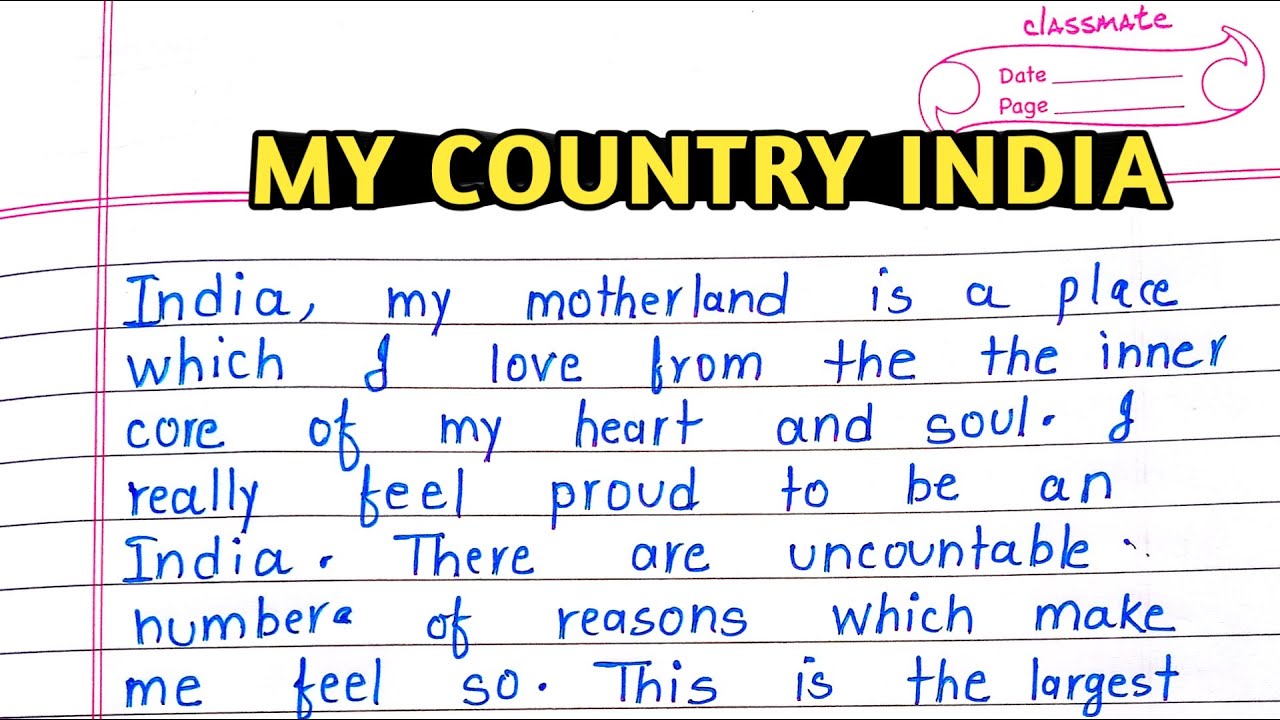 classmate
Date
Page
MY COUNTRY INDIA
India, my motherland is a place
which I love from the the inner
core of my heart and soul. I
really feel proud to be an
India. There are uncountable
number of reasons which make
me feel so. This is the largest